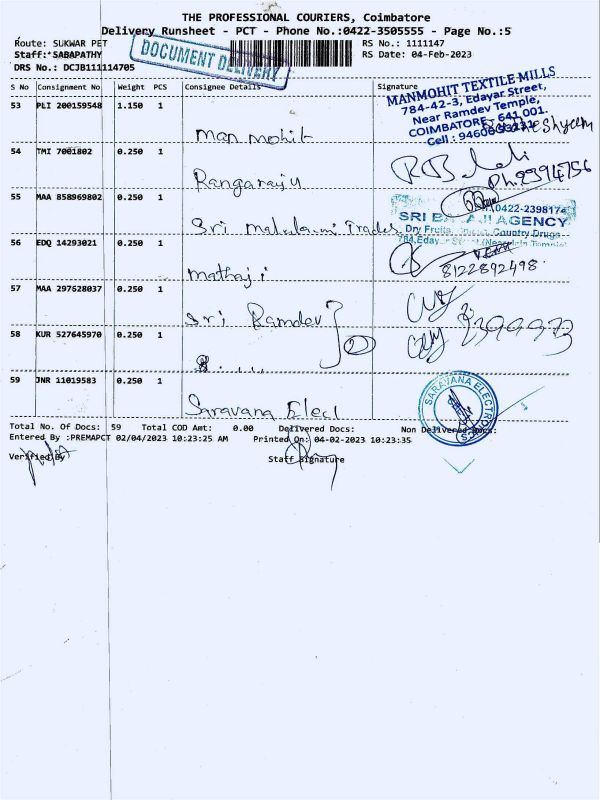 THE PROFESSIONAL COURIERS, Coimbatore
Delivery Runsheet - PCT - Phone No.:0422-3505555 - Page No.:5
Route: SUKWAR PET
RS No.: 1111147
Staff: SABAPATHY
RS Date: 04-Feb-2023
DRS No.: DCJB111114705
DOCUMENT DELIVERY
S No Consignment No Weight PCS Consignee Details Signature
53 PLI 200159548 1.150 1
Man mohit
MANMOHIT TEXTILE MILLS
784-42-3, Edayar Street,
Near Ramdev Temple,
COIMBATORE - 641 001.
Cell : 94606
54 TMI 7001802 0.250 1
Rangaraju
Ph:2394756
55 MAA 858969802 0.250 1
Sri Trades
0422-2398174
SRI BALAJI AGENCY
Dry Fruits, Country Drugs
56 EDQ 14293021 0.250 1
Mathaji
8122892498
57 MAA 297628037 0.250 1
Sri Ramdev
2
58 KUR 527645970 0.250 1
59 JNR 11019583 0.250 1
Saravana Elecl
SARAVANA ELECTRO
Total No. Of Docs: 59 Total COD Amt: 0.00 Delivered Docs: Non Delivered Docs:
Entered By :PREMAPCT 02/04/2023 10:23:25 AM Printed On: 04-02-2023 10:23:35
Verified By Staff Signature